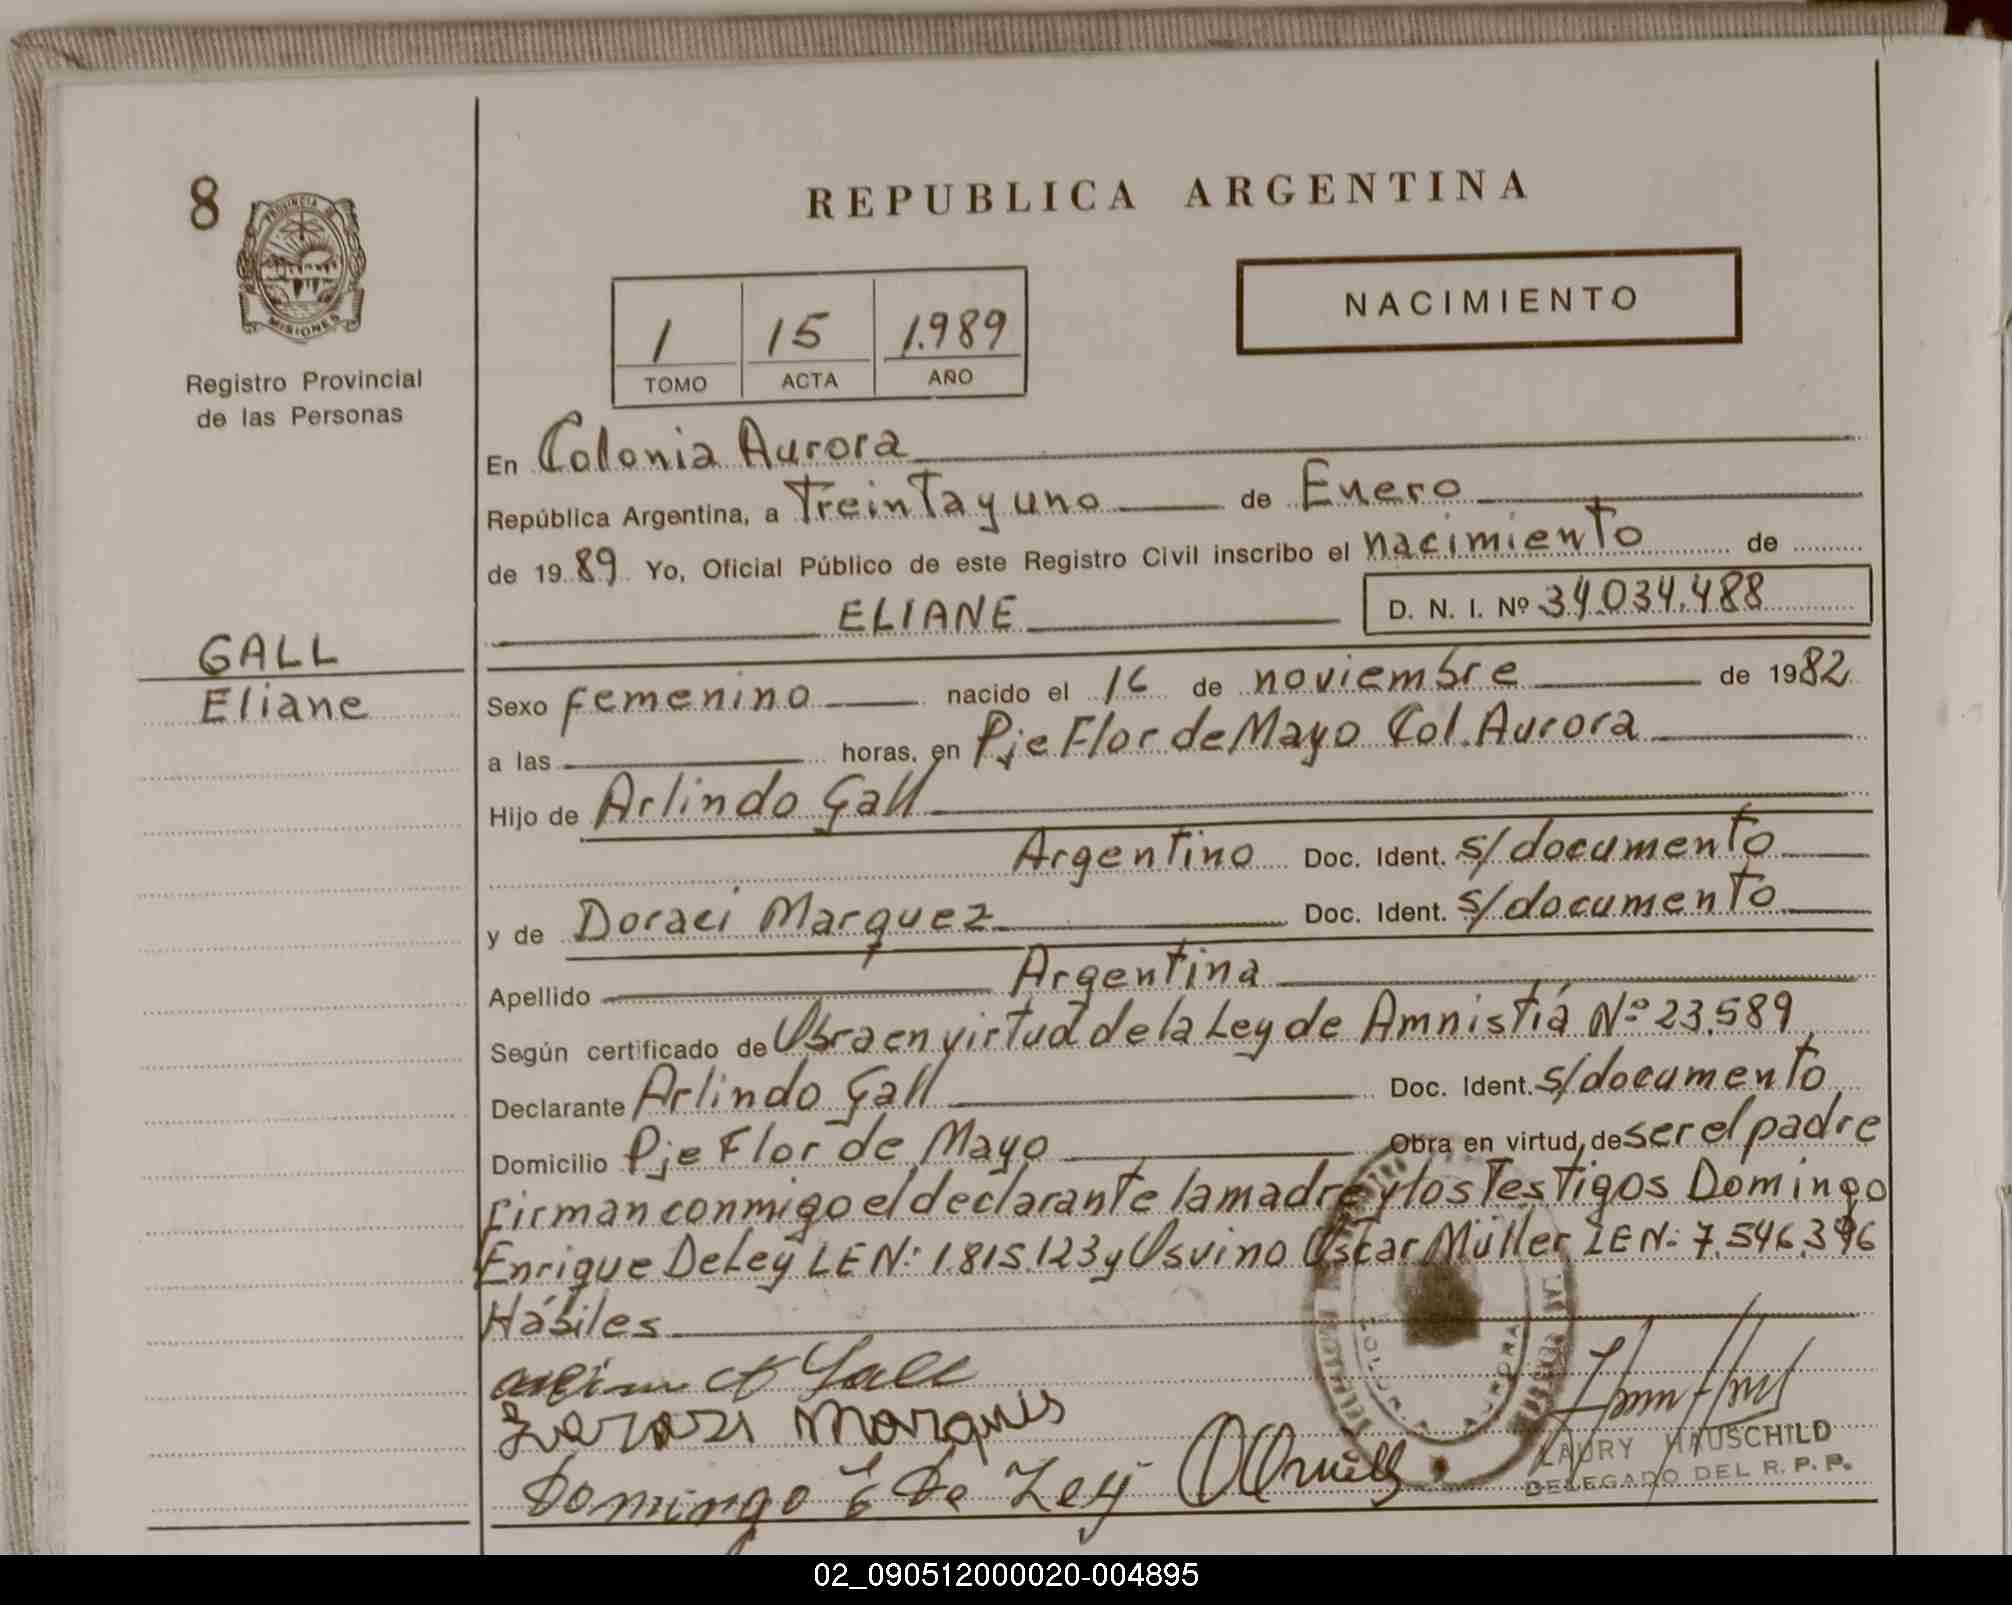 8
PROVINCIA DE
MISIONES
Registro Provincial
de las Personas
GALL
Eliane
REPUBLICA ARGENTINA
1 15 1.989
TOMO ACTA AÑO
NACIMIENTO
En Colonia Aurora
República Argentina, a Treinta y uno de Enero
de 1989 Yo, Oficial Público de este Registro Civil inscribo el nacimiento de
ELIANE D. N. I. Nº 34.034.488
Sexo femenino nacido el 16 de noviembre de 1982
a las horas, en Pje Flor de Mayo Col. Aurora
Hijo de Arlindo Gall
Argentino Doc. Ident. s/documento
y de Doraci Marquez Doc. Ident. s/documento
Apellido Argentina
Según certificado de Obra en virtud de la Ley de Amnistía Nº 23.589
Declarante Arlindo Gall Doc. Ident. s/documento
Domicilio Pje Flor de Mayo Obra en virtud de ser el padre
firman conmigo el declarante la madre y los Testigos Domingo
Enrique DeLey LEN: 1.815.123 y Osvino Oscar Müller LEN: 7.546.396
Hábiles
Gall
Marquis
Domingo E De Ley
COLONIA AURORA
LAURY HAUSCHILD
DELEGADO DEL R. P. P.
02_090512000020-004895